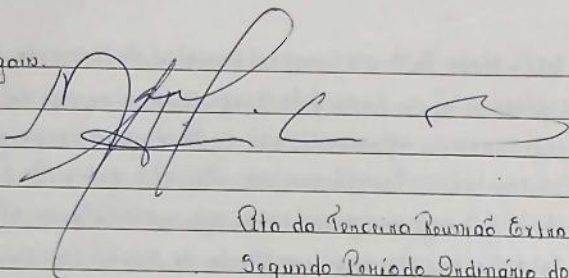 Ata da Terceira Reunião Extra
Segundo Período Ordinário da